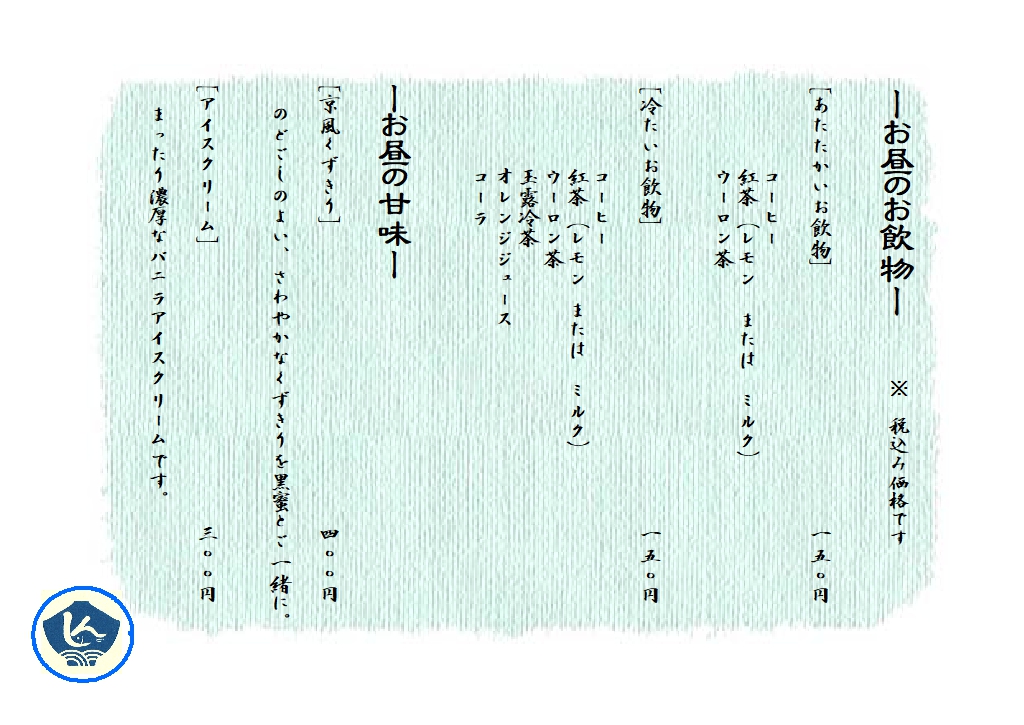 ーお昼のお飲物ー ※ 税込み価格です
[あたたかいお飲物] 一五〇円
コーヒー
紅茶(レモン または ミルク)
ウーロン茶
[冷たいお飲物] 一五〇円
コーヒー
紅茶(レモン または ミルク)
ウーロン茶
玉露冷茶
オレンジジュース
コーラ
ーお昼の甘味ー
[京風くずきり] 四〇〇円
のどごしのよい、さわやかなくずきりを黒蜜とご一緒に。
[アイスクリーム] 三〇〇円
まったり濃厚なバニラアイスクリームです。